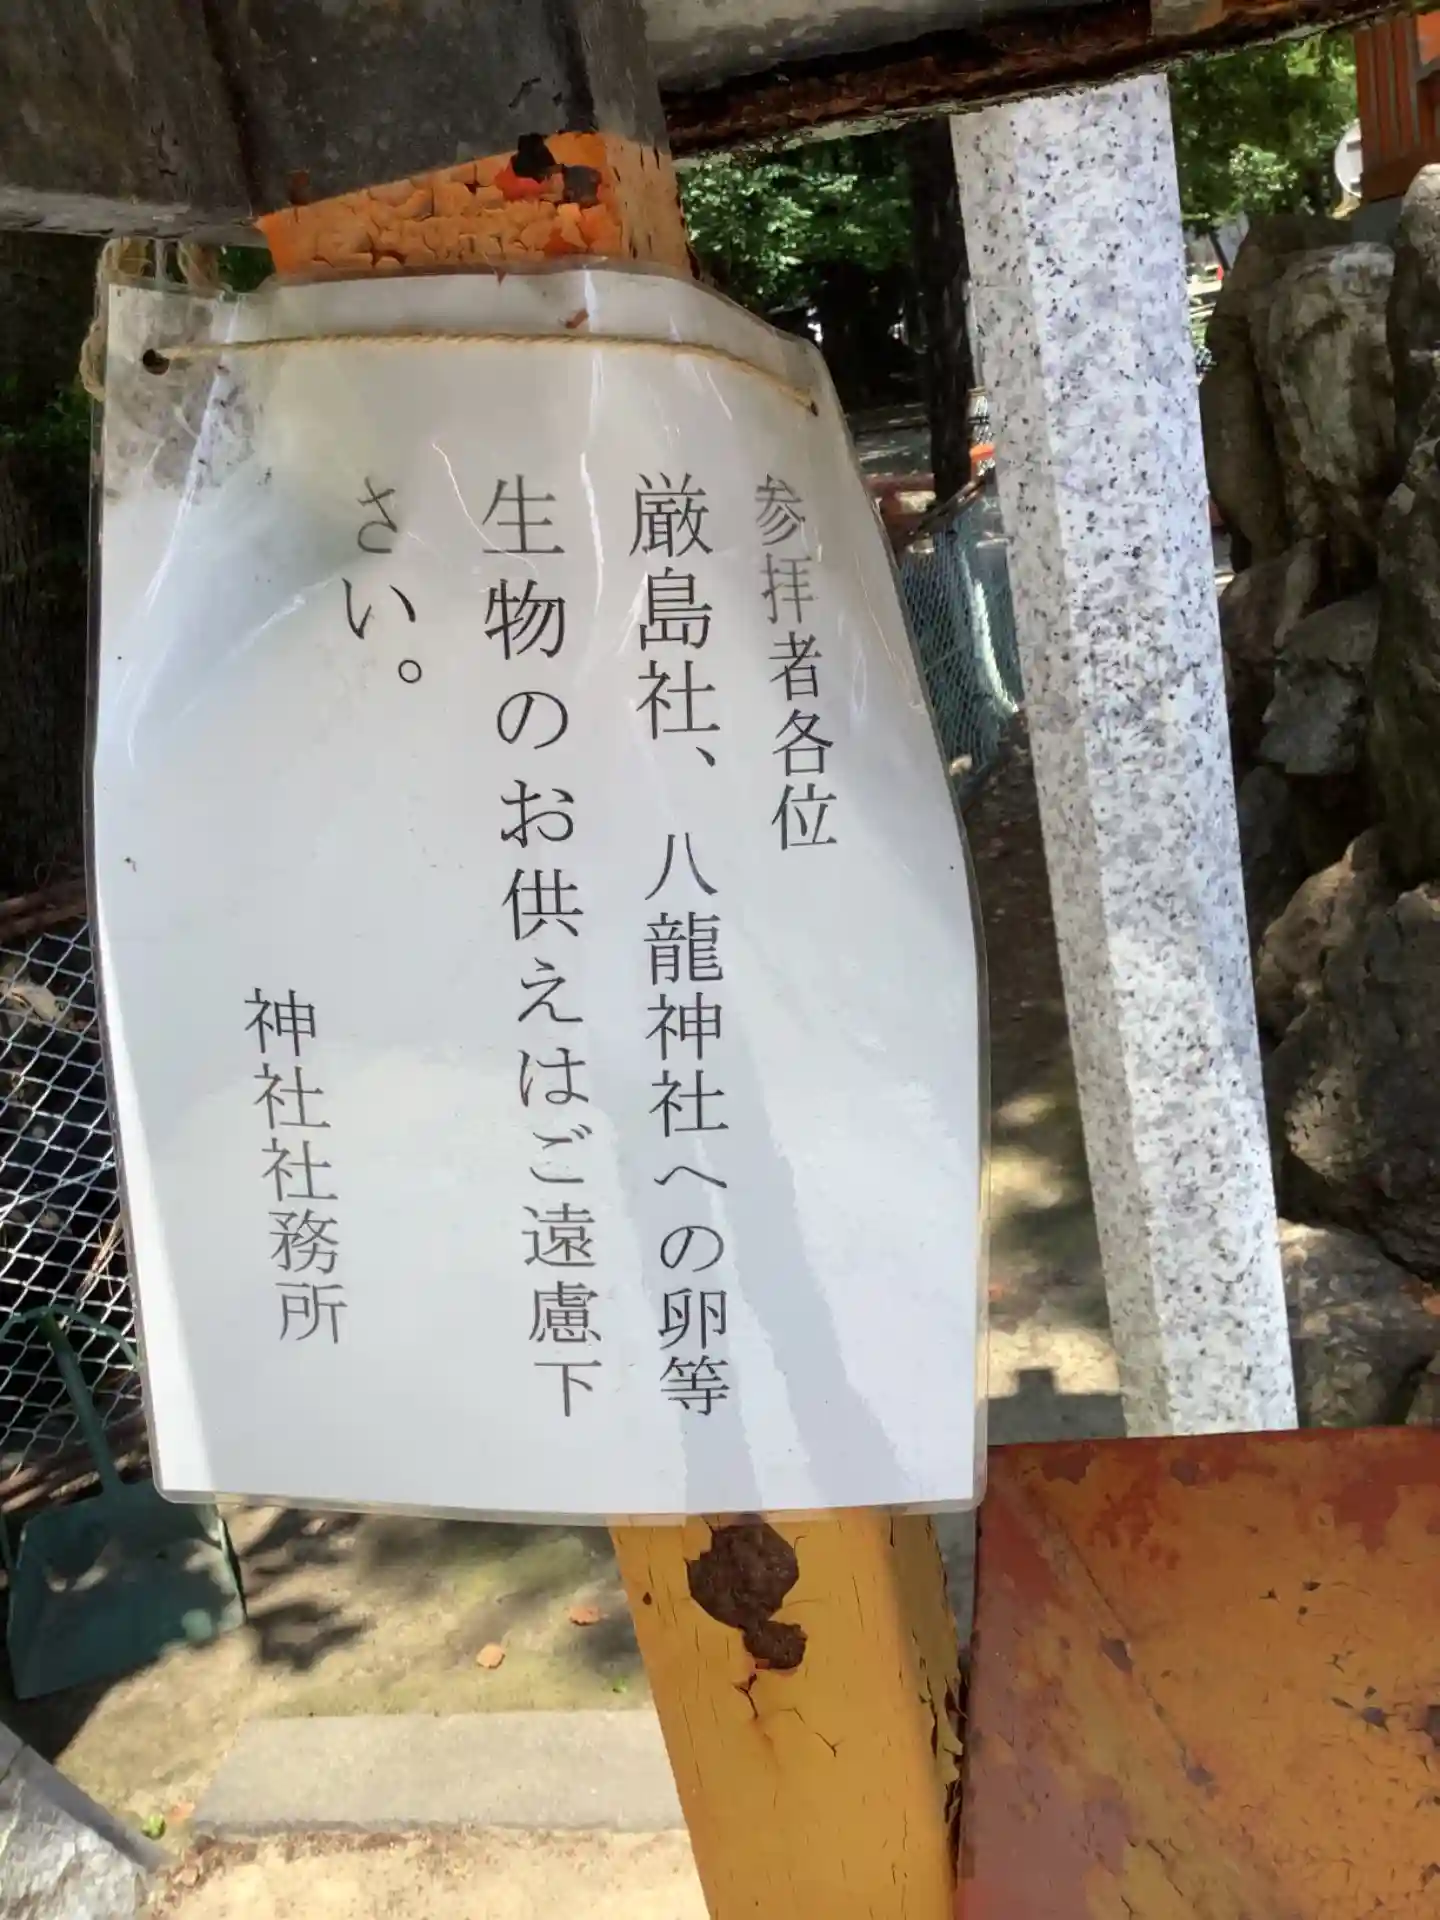 参拝者各位
厳島社、八龍神社への卵等
生物のお供えはご遠慮下
さい。
神社社務所